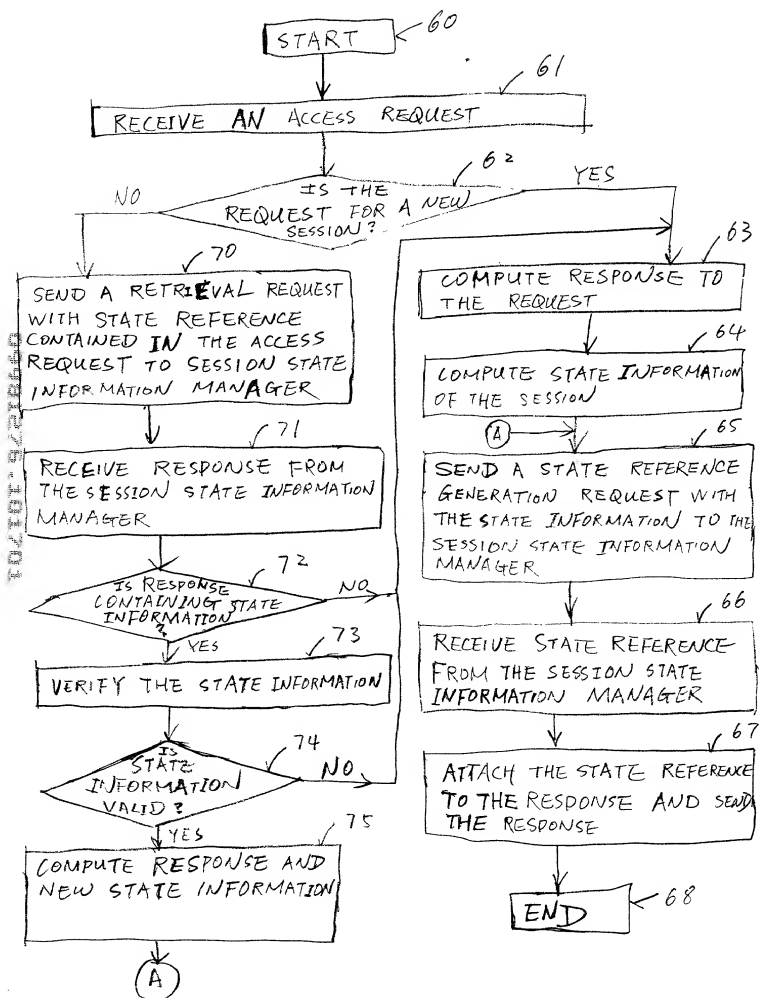 START
60
61
RECEIVE AN ACCESS REQUEST
62
IS THE
REQUEST FOR A NEW
SESSION?
NO
YES
70
SEND A RETRIEVAL REQUEST
WITH STATE REFERENCE
CONTAINED IN THE ACCESS
REQUEST TO SESSION STATE
INFORMATION MANAGER
71
RECEIVE RESPONSE FROM
THE SESSION STATE INFORMATION
MANAGER
72
IS RESPONSE
CONTAINING STATE
INFORMATION
?
NO
YES
73
VERIFY THE STATE INFORMATION
74
IS
STATE
INFORMATION
VALID?
NO
YES
75
COMPUTE RESPONSE AND
NEW STATE INFORMATION
A
63
COMPUTE RESPONSE TO
THE REQUEST
64
COMPUTE STATE INFORMATION
OF THE SESSION
A
65
SEND A STATE REFERENCE
GENERATION REQUEST WITH
THE STATE INFORMATION TO THE
SESSION STATE INFORMATION
MANAGER
66
RECEIVE STATE REFERENCE
FROM THE SESSION STATE
INFORMATION MANAGER
67
ATTACH THE STATE REFERENCE
TO THE RESPONSE AND SEND
THE RESPONSE
END
68